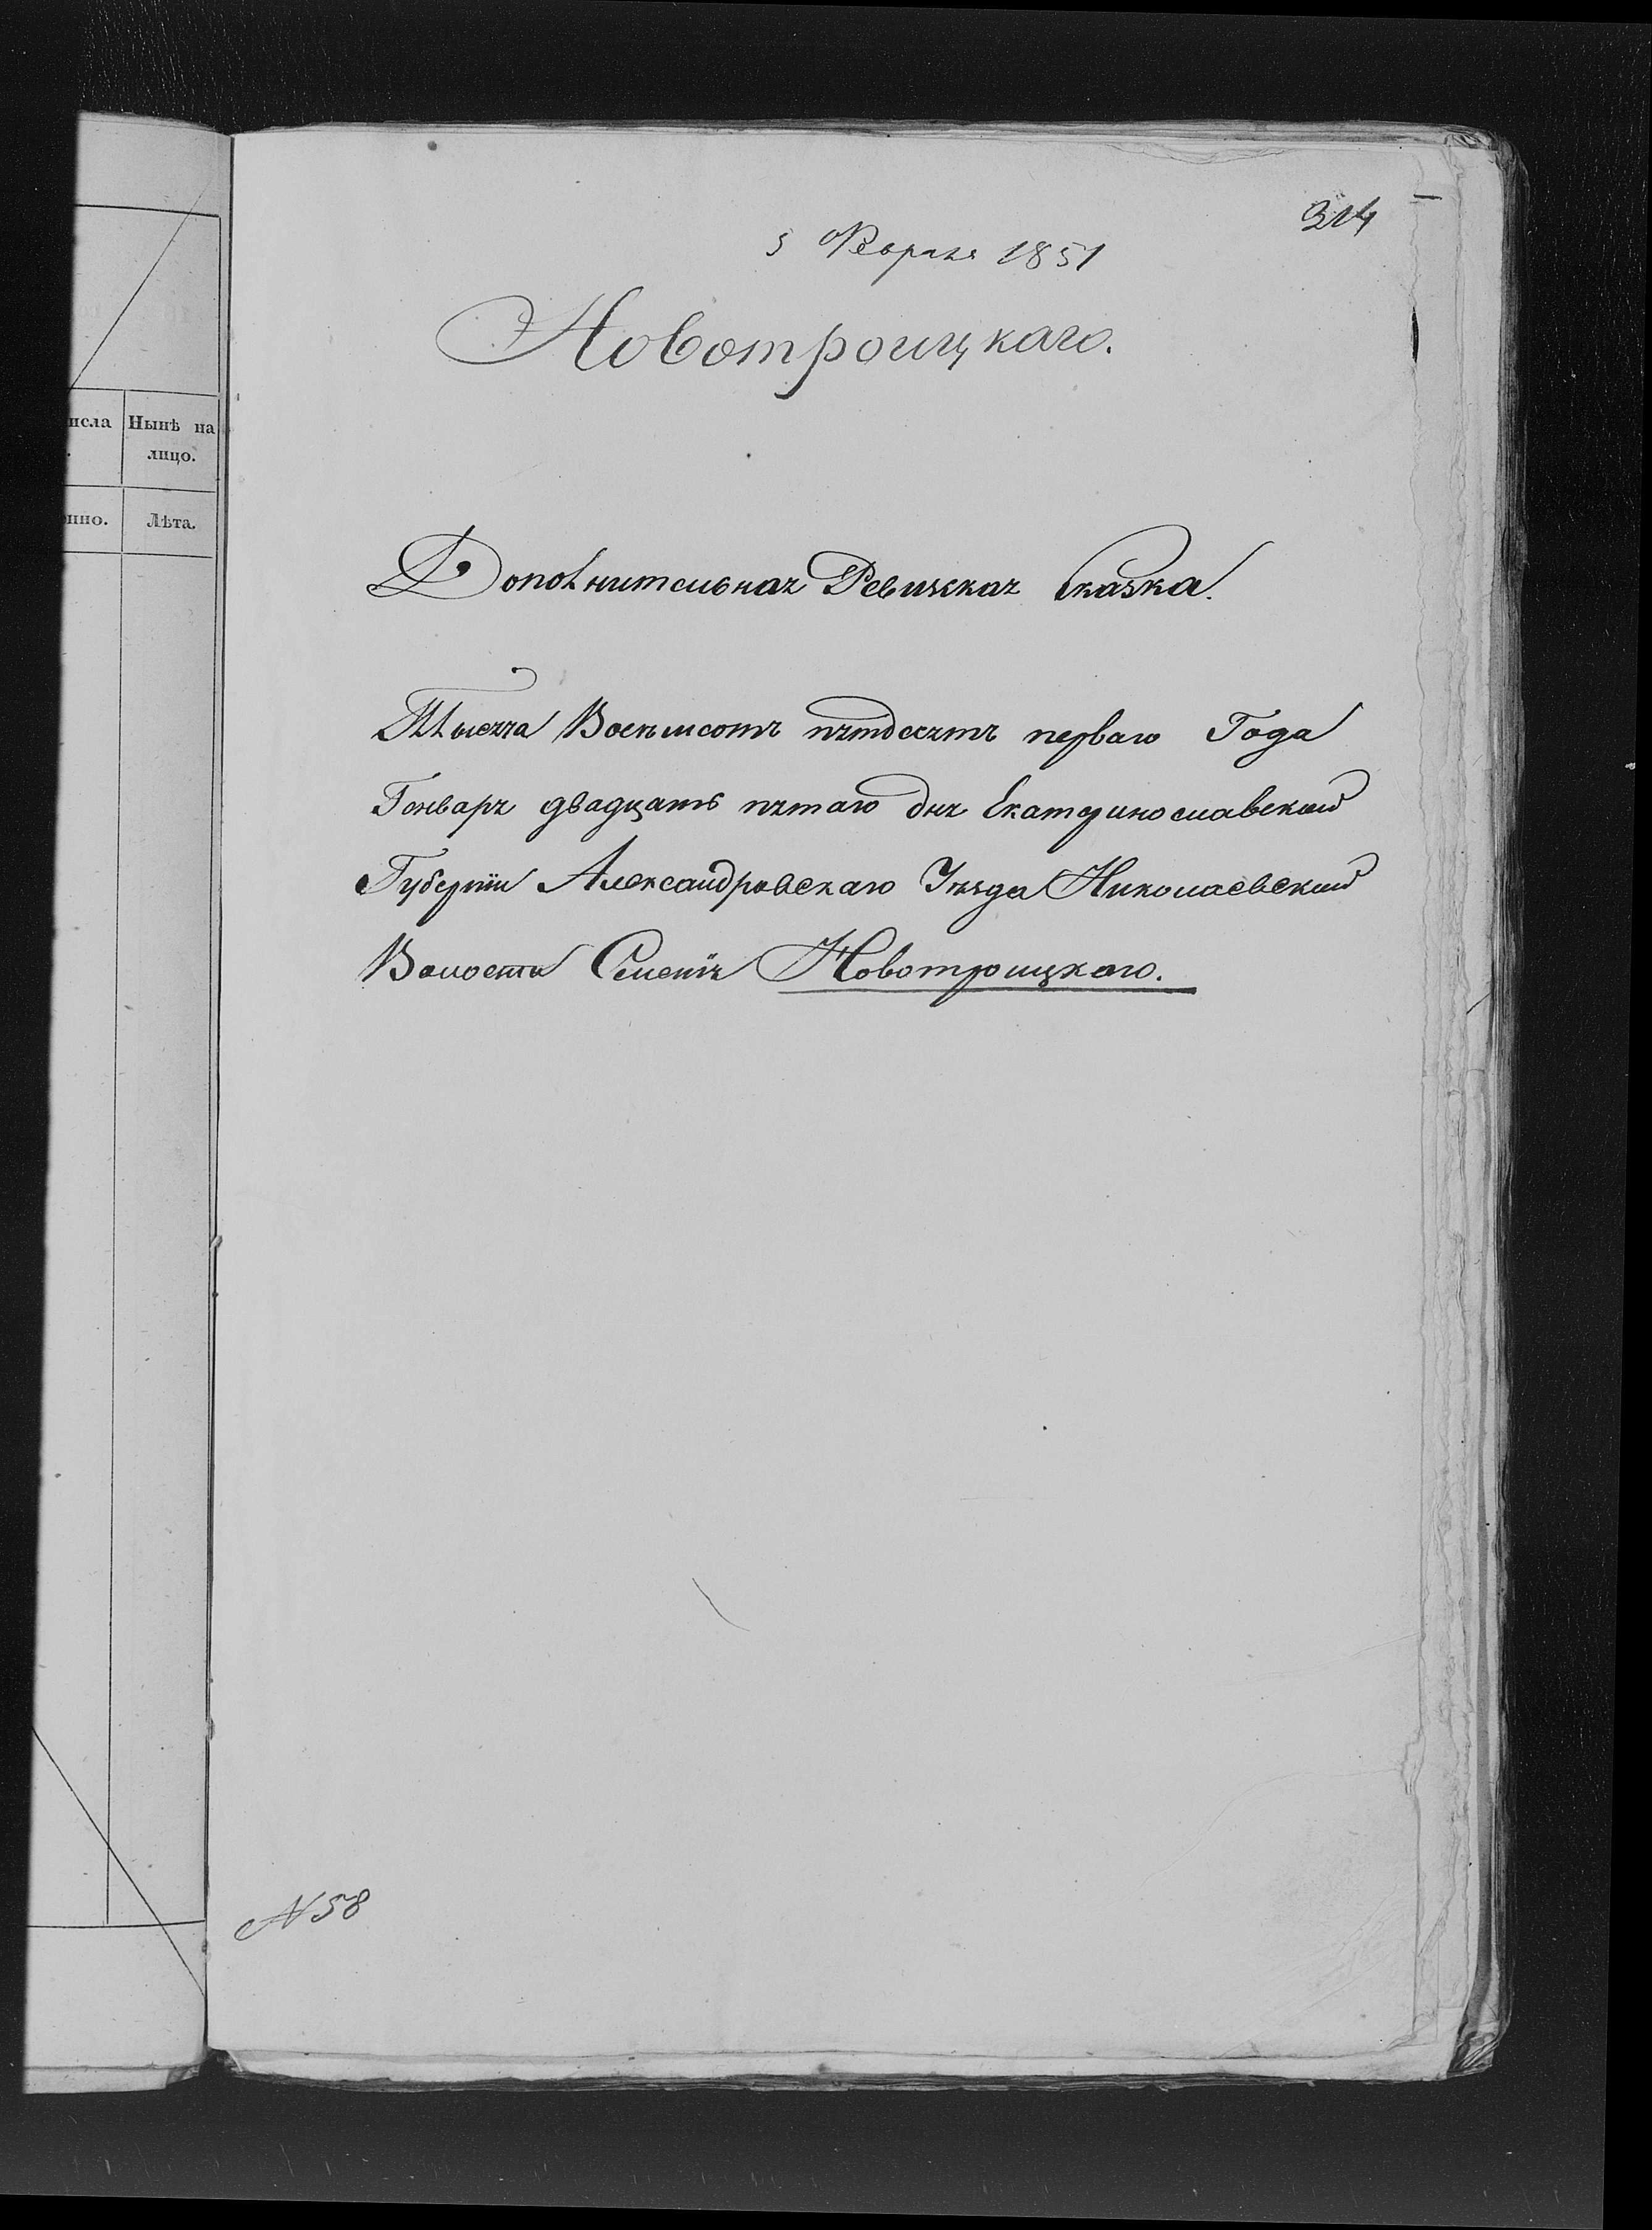 314
5 Февраля 1851
Новотроицкаго.
исла
Нынѣ на
лицо.
нно.
Лѣта.
Дополнительная Ревизская Сказка.
Тысяча Восемсотъ пятдесятъ перваго Года
Генваря двадцать пятаго дня Екатеринославской
Губерніи Александровскаго Уѣзда Николаевской
Волости Селенія Новотроицкаго.
N 58